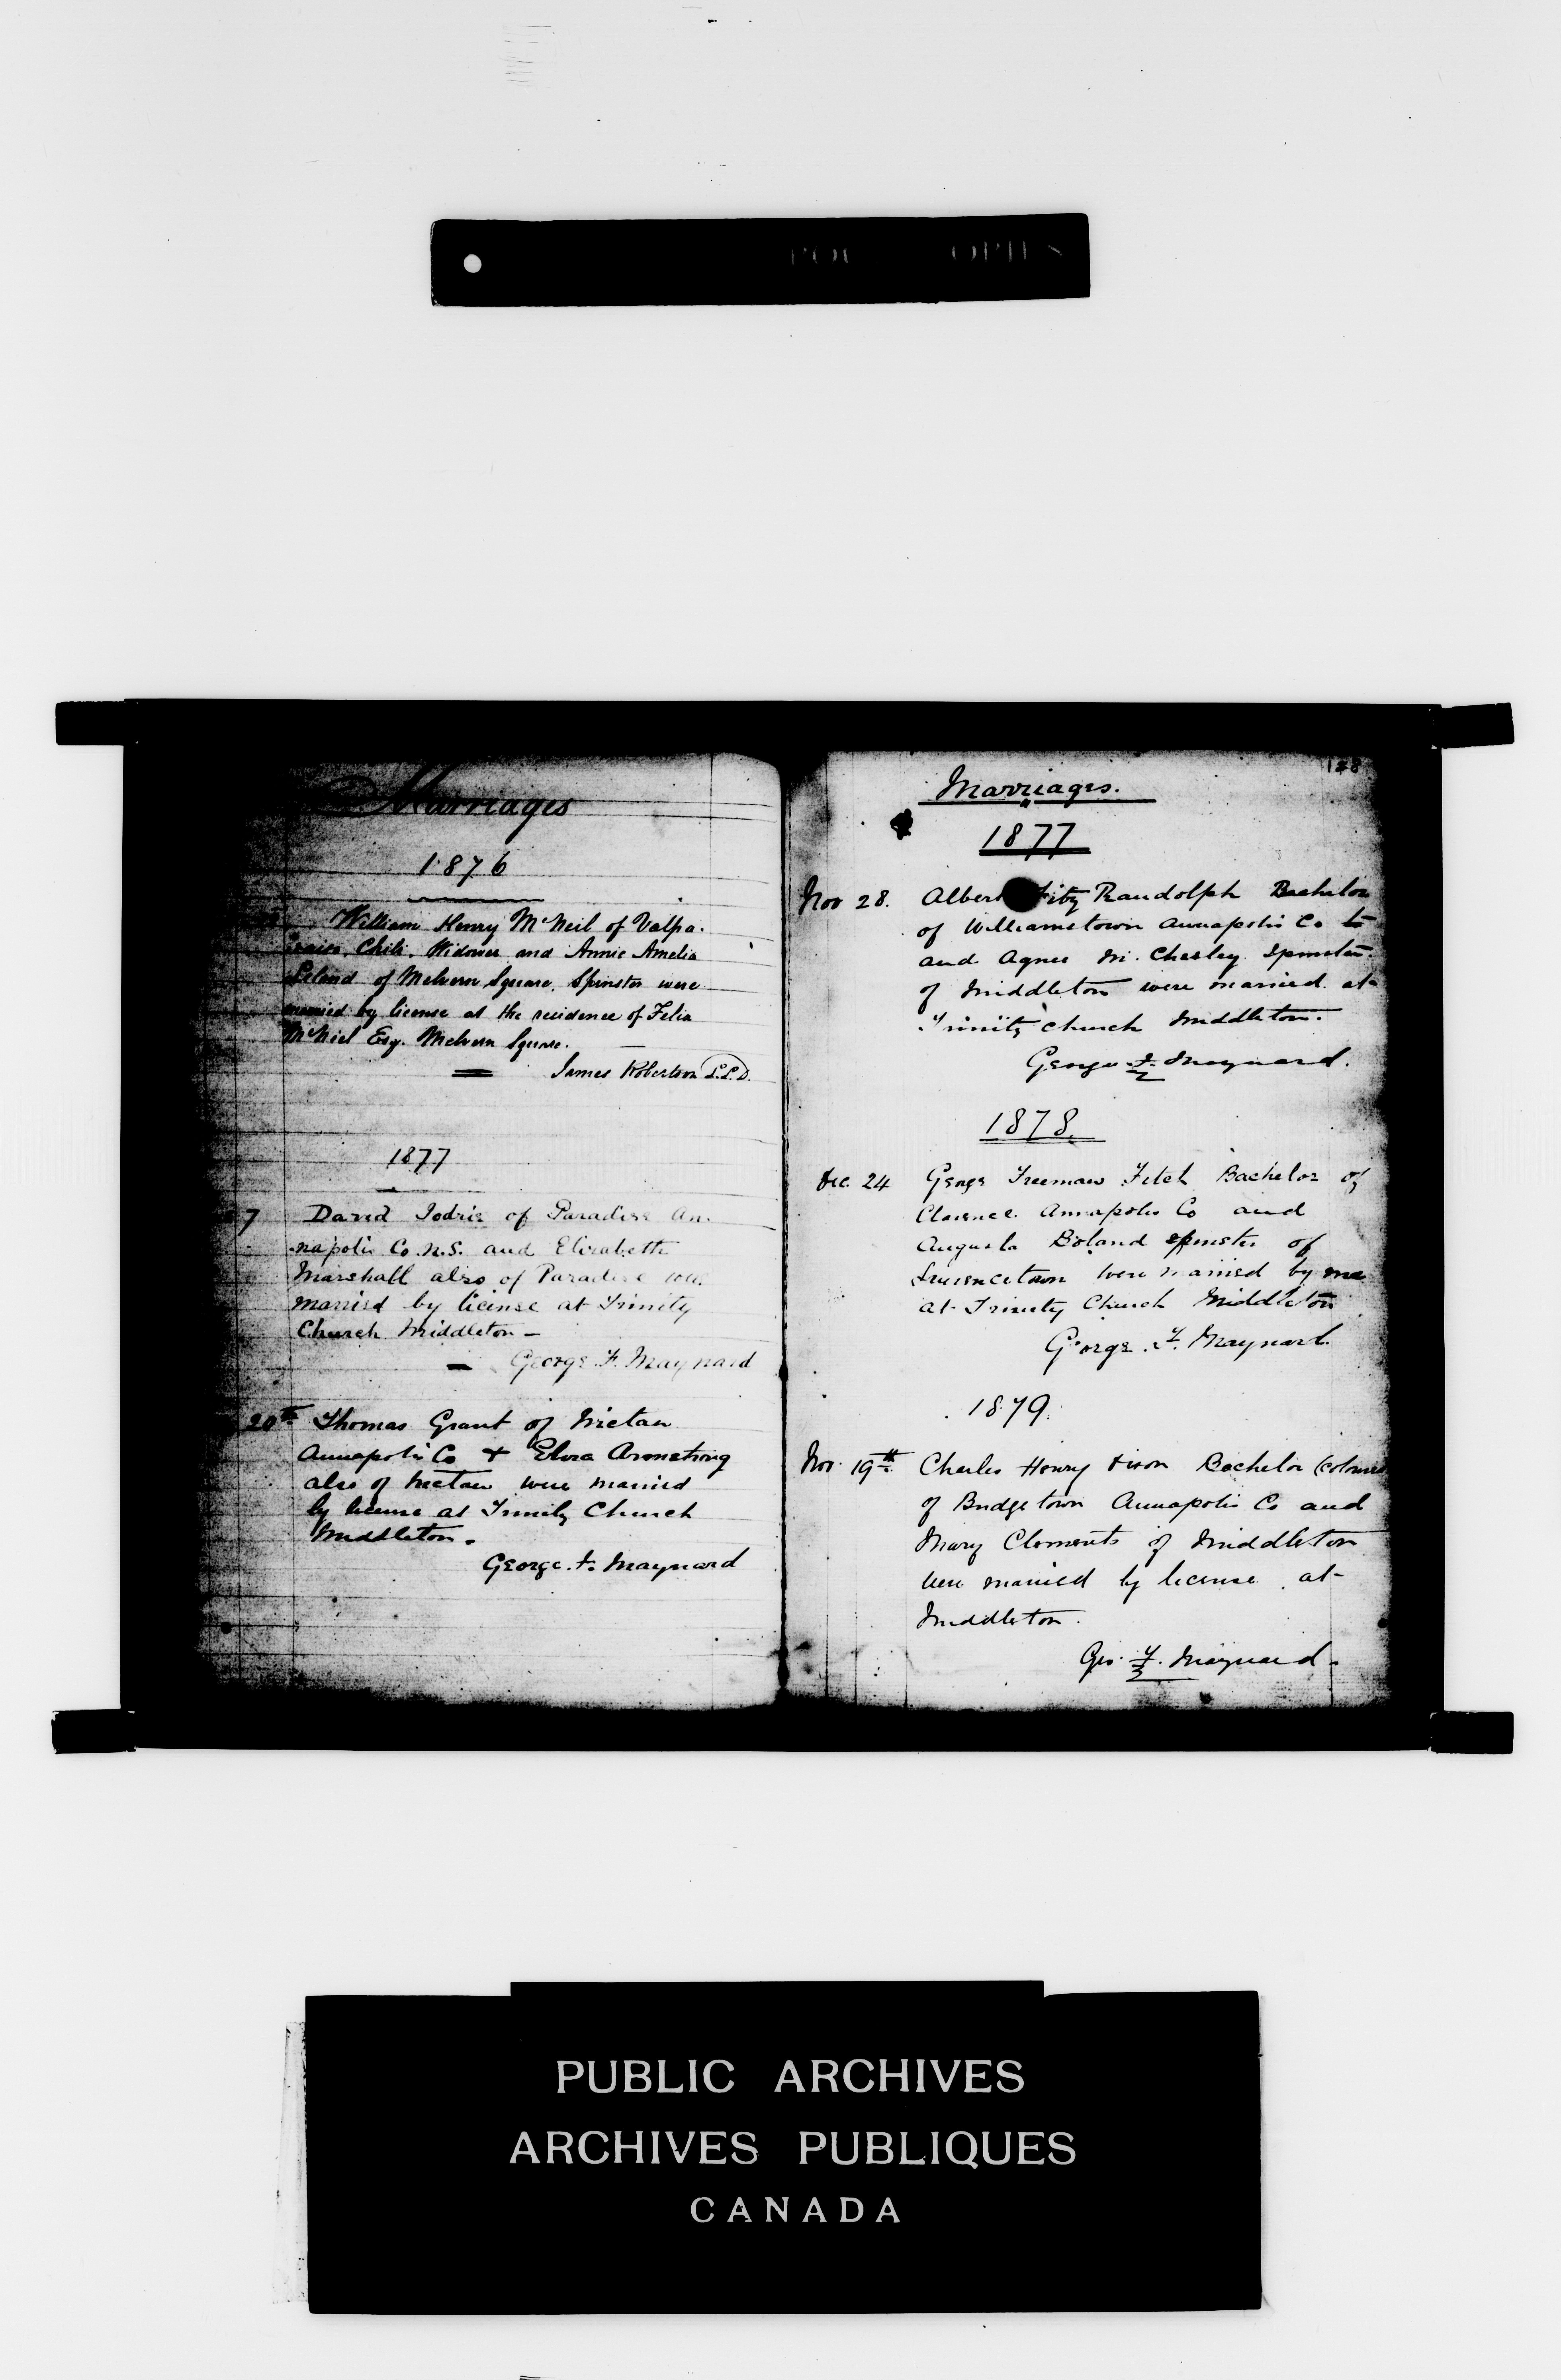 Marriages
1876
William Henry McNeil of Valpa-
raiso, Chili, Widower and Annie Amelia
Leland of Melvern Square, Spinster were
married by license at the residence of Felix
McNiel Esq. Melvern Square.
James Robertson L.L.D.
1877
7 David Jodrie of Paradise An-
napolis Co. N.S. and Elizabeth
Marshall also of Paradise were
married by license at Trinity
Church Middleton -
George F. Maynard
20th Thomas Grant of Nictau
Annapolis Co + Elvra Armstrong
also of Nictau were married
by license at Trinity Church
Middleton.
George F. Maynard
128
Marriages.
1877
Nov 28. Albert Fitz Randolph Bachelor
of Williamstown Annapolis Co to
and Agnes M. Chesley Spinster
of Middleton were married at
Trinity Church Middleton.
George F. Maynard.
1878
Dec. 24 George Freeman Fitch Bachelor of
Clarence Annapolis Co and
Augusta Boland spinster of
Lawrencetown were married by me
at Trinity Church Middleton
George F. Maynard.
1879.
Nov. 19th Charles Henry Bachelor (colored
of Bridgetown Annapolis Co and
Mary Clements of Middleton
were married by license at
Middleton.
Geo. F. Maynard.
PUBLIC ARCHIVES
ARCHIVES PUBLIQUES
CANADA